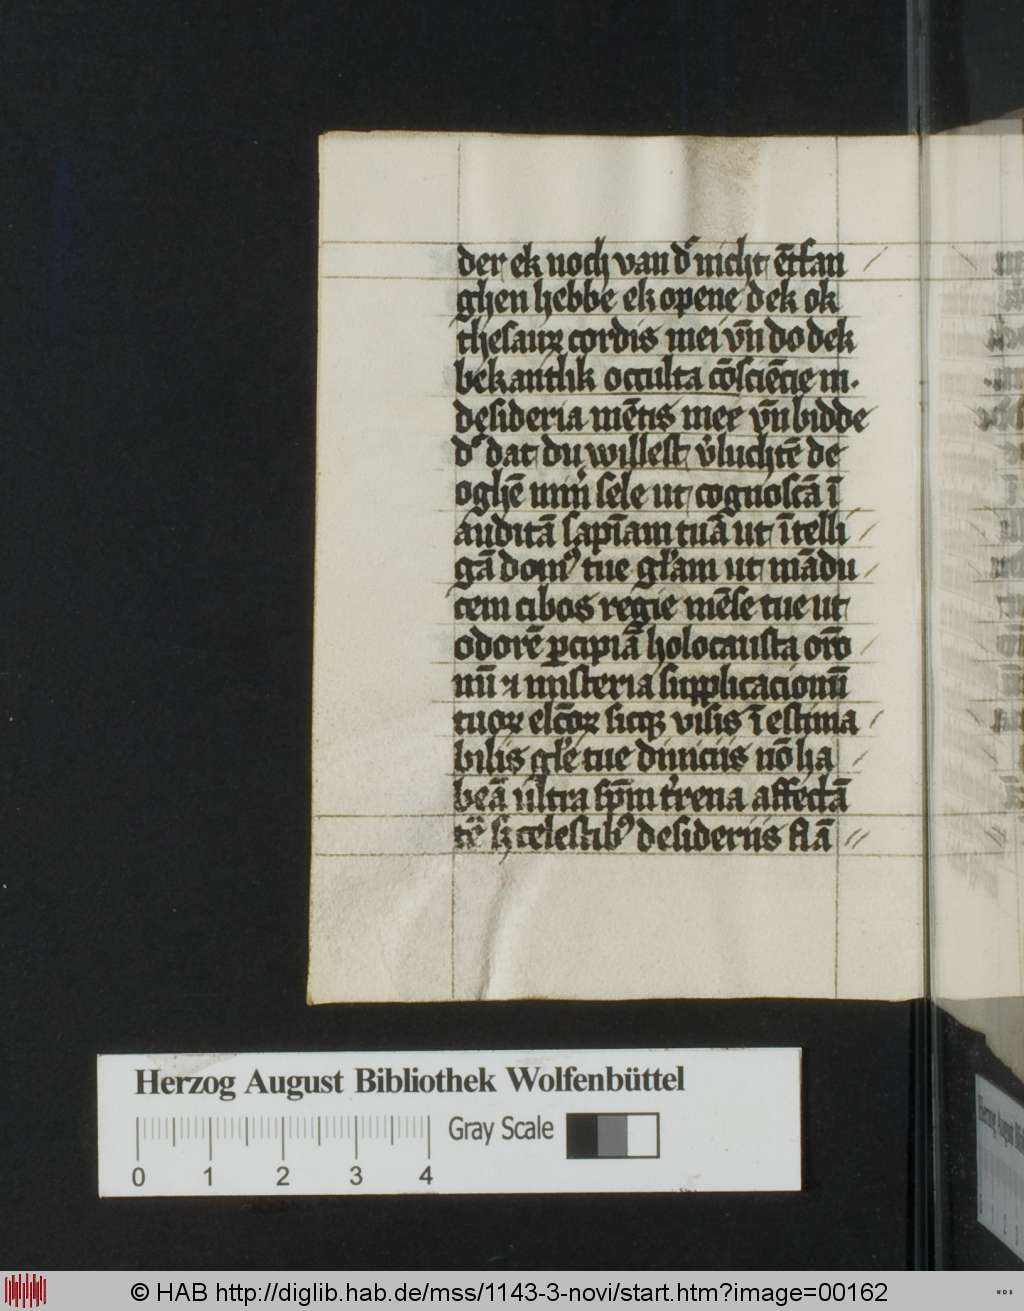 der ek noch van dͥ nicht ētfan
ghen hebbe ek opene dek ok
thesauꝝ cordis mei vn̄ do dek
bekantlik occulta cōsciēcie m.
desideria mētis mee vn̄ bidde
dͥ dat du willest v̓luchtē de
oghē mīn̓ sele ut cognoscā ī
auditā sapīam tuā ut ītelli
gā domꝰ tue gl̓am ut mādu
cem cibos regie mēse tue ut
odorē ꝑcipiā holocausta or̄o
nū ⁊ misteria supplicacionū
tuoꝝ elc̄oꝝ sicqꝫ visis ī estima
bilis gl̓e tue diuiciis nō ha
beā ultra sp̄m t̓rena affectā
tē sꝫ celestibꝰ desideriis flā
Herzog August Bibliothek Wolfenbüttel
Gray Scale
0 1 2 3 4
© HAB http://diglib.hab.de/mss/1143-3-novi/start.htm?image=00162